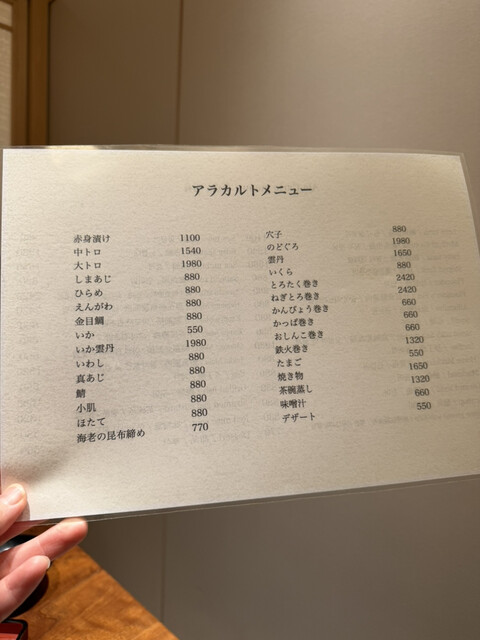 アラカルトメニュー
赤身漬け 1100
中トロ 1540
大トロ 1980
しまあじ 880
ひらめ 880
えんがわ 880
金目鯛 880
いか 550
いか雲丹 1980
いわし 880
真あじ 880
鯖 880
小肌 880
ほたて 880
海老の昆布締め 770
穴子 880
のどぐろ 1980
雲丹 1650
いくら 880
とろたく巻き 2420
ねぎとろ巻き 2420
かんぴょう巻き 660
かっぱ巻き 660
おしんこ巻き 660
鉄火巻き 1320
たまご 550
焼き物 1650
茶碗蒸し 1320
味噌汁 660
デザート 550